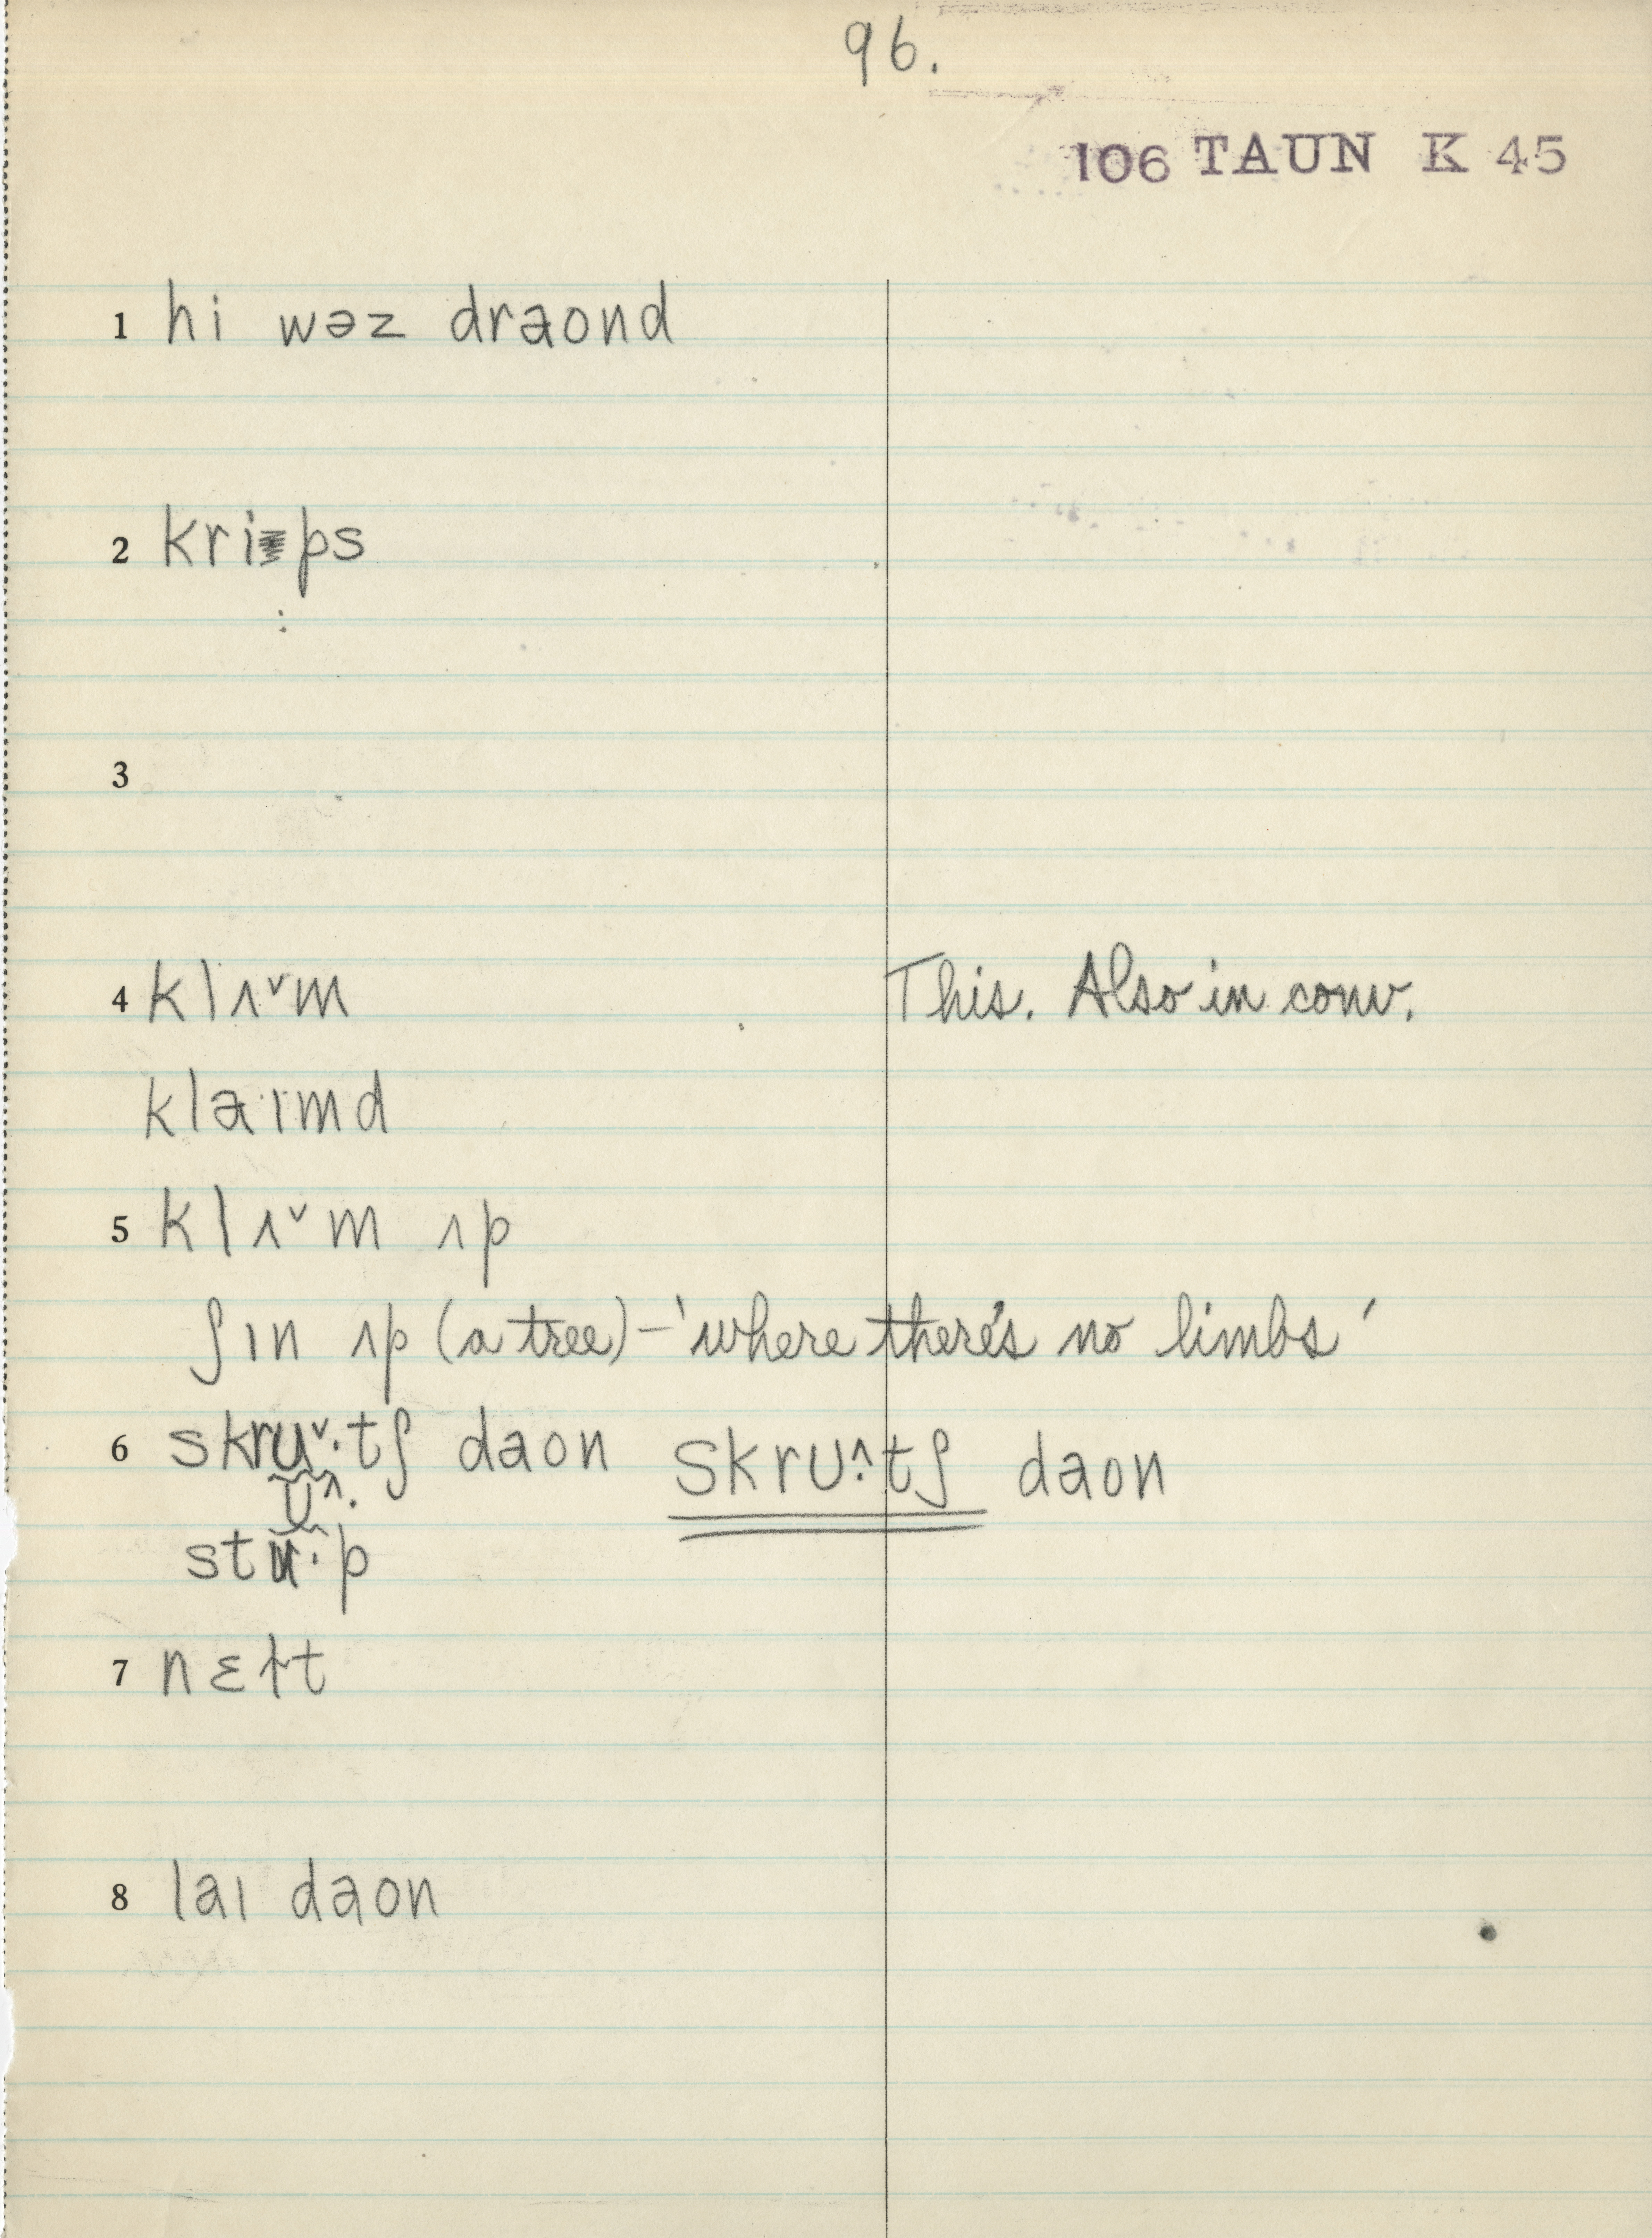 96.
106 TAUN K 45
1 hi wəz draond
2 krips
3
4 klʌ˅m This. Also in conv.
klaɪmd
5 klʌ˅m ʌp
ʃɪn ʌp (a tree) – 'where there's no limbs'
6 skru˅·tʃ daon skrᴜ^·tʃ daon
ᴜ^·
st·p
7 nɛɫt
8 laɪ daon